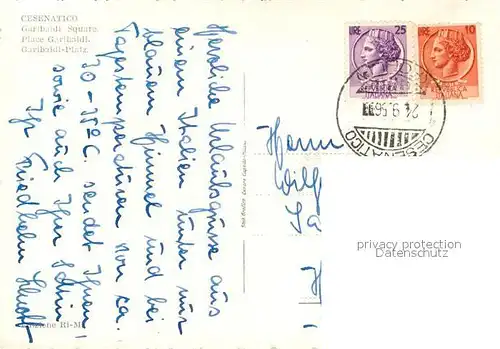 CESENATICO
Garibaldi Square.
Place Garibaldi.
Garibaldi-Platz
Herzliche Urlaubsgrüsse aus
einem Italien unter nur
blauem Himmel und bei
Tagestemperaturen von ca.
30-35°C. sendet Ihnen
sowie auch Ihrer
Ihr Friedhelm
LIRE 25
LIRE 10
ITALIANA
CESENATICO
24.9.56
Herrn
Wilf
H
privacy protection
Datenschutz